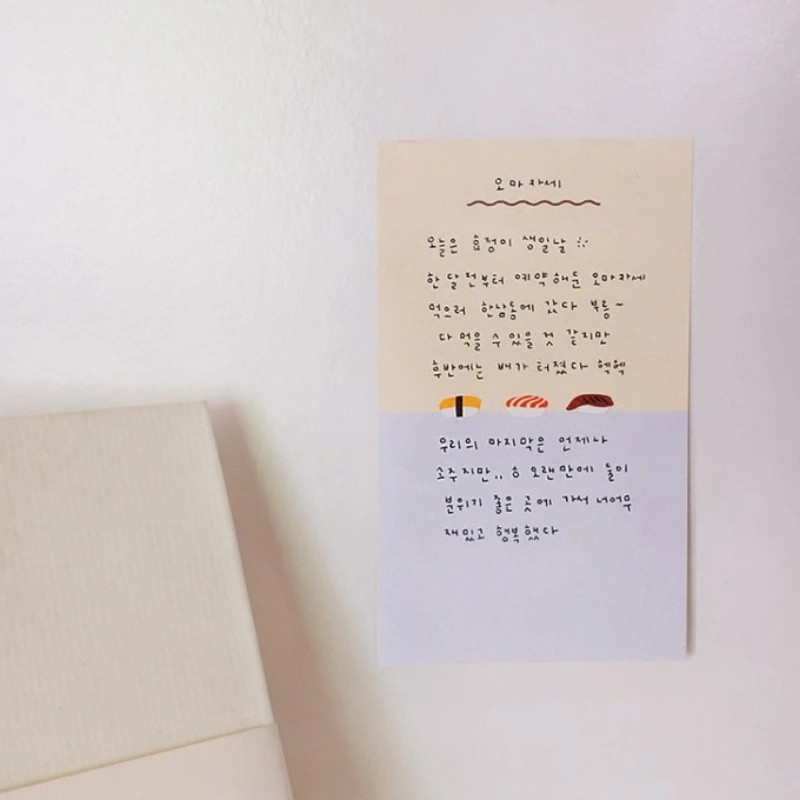 오마카세
오늘은 효정이 생일날
한 달 전부터 예약해둔 오마카세
먹으러 한남동에 갔다 부릉~
다 먹을 수 있을 것 같지만
후반에는 배가 터졌다 헥헥
우리의 마지막은 언제나
소주지만.. ㅎ 오랜만에 둘이
분위기 좋은 곳에 가서 너어무
재밌고 행복했다